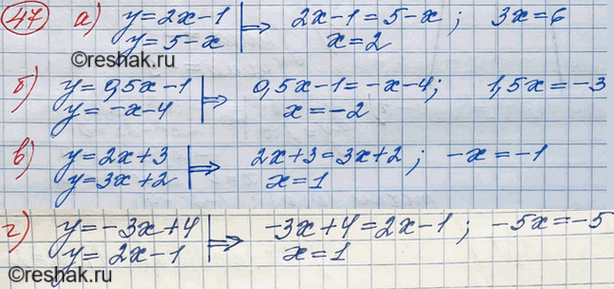 47 а) y=2x-1 | ⇒ 2x-1=5-x; 3x=6
y=5-x x=2
б) y=0,5x-1 | ⇒ 0,5x-1=-x-4; 1,5x=-3
y=-x-4 x=-2
в) y=2x+3 | ⇒ 2x+3=3x+2; -x=-1
y=3x+2 x=1
г) y=-3x+4 | ⇒ -3x+4=2x-1; -5x=-5
y=2x-1 x=1
©reshak.ru
©reshak.ru